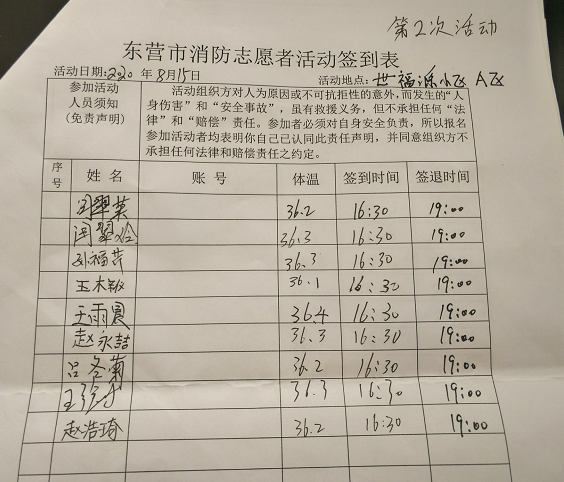 第2次活动
东营市消防志愿者活动签到表
活动日期:2020年8月15日 活动地点:世福源小区A区
参加活动人员须知(免责声明)
活动组织方对人为原因或不可抗拒性的意外,而发生的"人
身伤害"和"安全事故",虽有救援义务,但不承担任何"法
律"和"赔偿"责任。参加者必须对自身安全负责,所以报名
参加活动者均表明你自己已认同此责任声明,并同意组织方不
承担任何法律和赔偿责任之约定。
序号 姓名 账号 体温 签到时间 签退时间
闫翠英 36.2 16:30 19:00
闫翠玲 36.3 16:30 19:00
孙福芹 36.3 16:30 19:00
王木敏 36.1 16:30 19:00
王雨晨 36.4 16:30 19:00
赵永喆 36.3 16:30 19:00
吕冬菊 36.2 16:30 19:00
王 36.3 16:30 19:00
赵浩琦 36.2 16:30 19:00